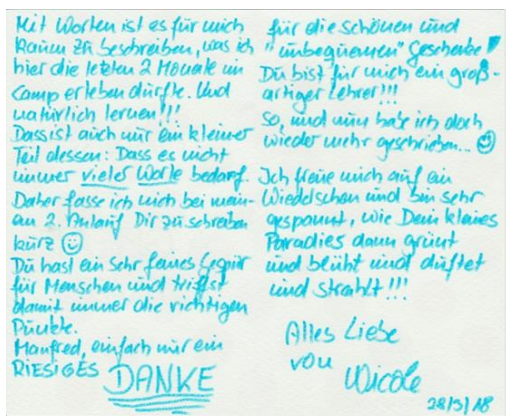 Mit Worten ist es für mich
kaum zu beschreiben, was ich
hier die letzten 2 Monate im
Camp erleben durfte. Und
natürlich lernen!!!
Dass ist auch nur ein kleiner
Teil dessen: Dass es nicht
immer vieler Worte bedarf.
Daher fasse ich mich bei mein-
em 2. Anlauf Dir zu schreiben
kurz ☺
Du hast ein sehr feines Gespür
für Menschen und triffst
damit immer die richtigen
Punkte.
Manfred, einfach nur ein
RIESIGES DANKE
für die schönen und
"unbequemen" Geschenke!
Du bist für mich ein groß-
artiger Lehrer!!!
So, und nun habe ich doch
wieder mehr geschrieben... ☺
Ich freue mich auf ein
Wiedersehen und bin sehr
gespannt, wie Dein kleines
Paradies dann grünt
und blüht und duftet
und strahlt!!!
Alles Liebe
von
Nicole
28/5/18